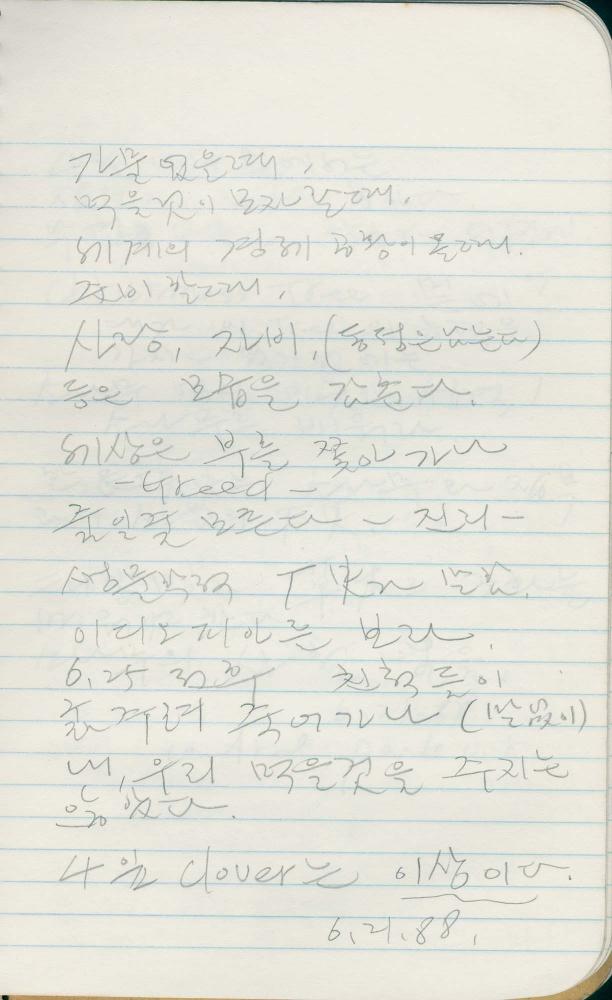 가물 었을때,
먹을것이 모자랄때.
세계의 경제 공황이 올때.
사랑, 자비, (동정은 또는)
등은 모습을 감춘다.
세상은 부를 쫓아 가나
- Greed -
줄일줄 모른다 - 진리 -
이디오피아를 보라.
6.25 친척들이
굶주려 죽어가나 (말없이)
내, 우리 먹을것을 주지는
않았다.
4월 Clover는 이상이다.
6.21.88.